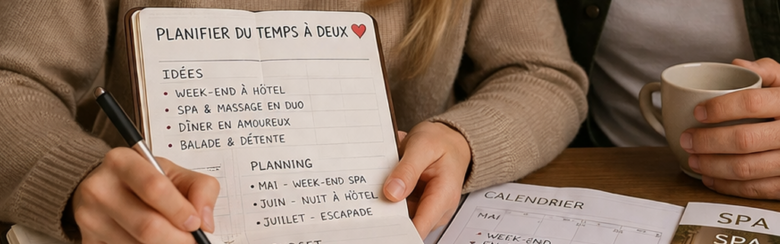 PLANIFIER DU TEMPS À DEUX ❤
IDÉES
• WEEK-END À HÔTEL
• SPA & MASSAGE EN DUO
• DÎNER EN AMOUREUX
• BALADE & DÉTENTE
PLANNING
• MAI - WEEK-END SPA
• JUIN - NUIT À HÔTEL
• JUILLET - ESCAPADE
CALENDRIER
MAI
• WEEK-END
SPA
SPA